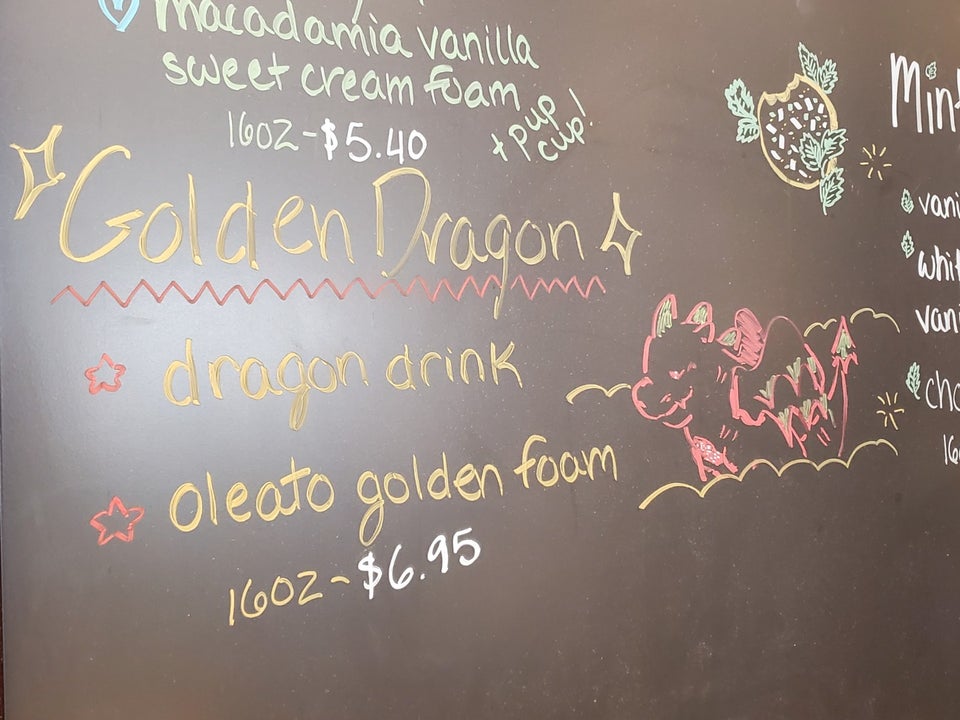 macadamia vanilla
sweet cream foam
16oz - $5.40
+ pup
cup!
Golden Dragon
dragon drink
oleato golden foam
16oz - $6.95
vani
vani